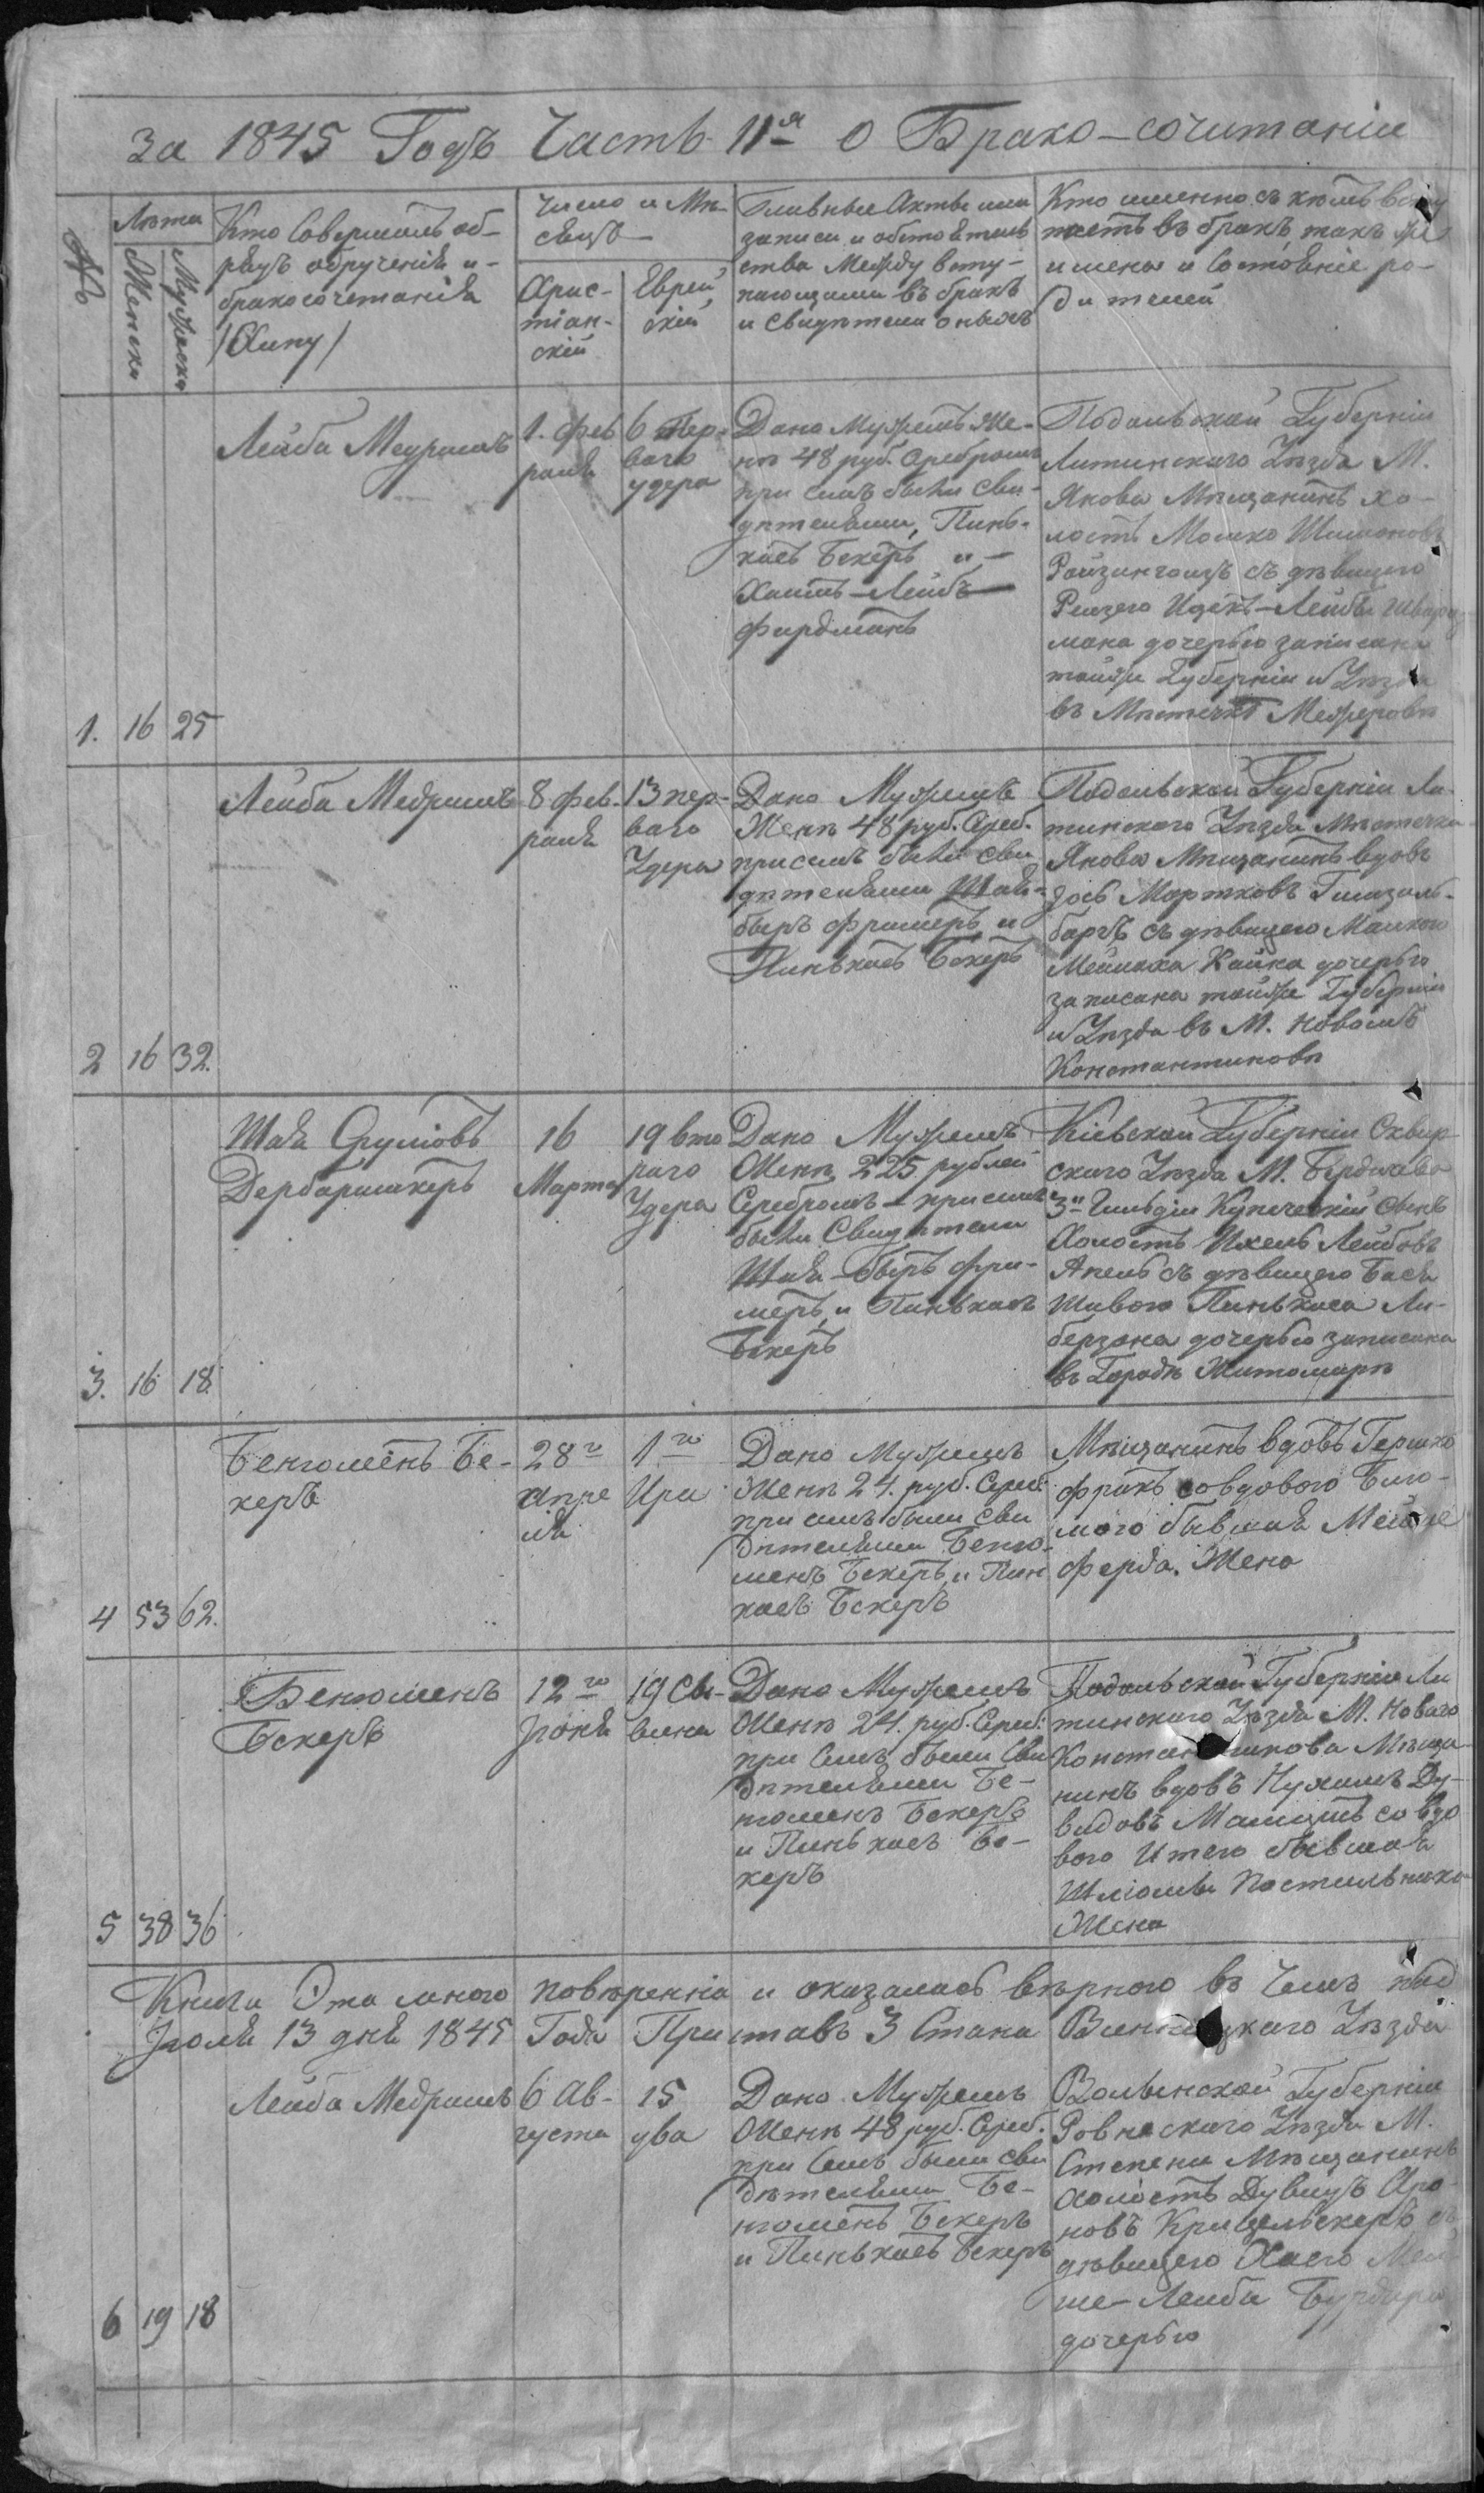 за 1845 Годъ Часть II-я о Брако-сочитаніи
№
Лѣта
Женска
Мужеска
Кто Совершалъ об-
рядъ обрученія и
бракосочетанія
/Хипу/
Число и Мѣ-
сяцъ
Хрис-
тіан-
скій
Еврей
скій
Главные Акты или
записи и обстоятель
ства Между всту-
пающими въ бракъ
и Свидѣтели оныхъ
Кто именно съ кѣмъ всту
паетъ въ бракъ, такъ же
имена и Состояніе ро-
дителей
1. 16 25
Лейба Медришъ
1. Фев
раля
6 пер-
ваго
Удера
Дано Мужемъ Же-
нѣ 48 руб. Сребромъ
при семъ были Сви-
дѣтелями, Пинь-
касъ Бекеръ и
Хаимъ-Лейбъ
Фирдманъ
Подольской Губерніи
Литинскаго Уѣзда М.
Янова Мѣщанинъ хо-
лостъ Мошко Шимоновъ
съ дѣвицею
Лейбы
мана дочерью записана
тойже Губерніи и Уѣзда
въ Мѣстечкѣ Межеровѣ
2 16 32.
Лейба Медришъ
8 Фев.
раля
13 пер-
ваго
Удера
Дано Мужемъ
Женѣ 48 руб. Среб.
при семъ были Сви
дѣтелями Шая-
быръ Фримеръ и
Пинькасъ Бекеръ
Подольской Губерніи Ли-
тинскаго Уѣзда Мѣстечка
Янова Мѣщанинъ вдовъ
Зось Мортковъ
съ дѣвицею Малкою
дочерью
записана тойже Губерніи
и Уѣзда въ М. Новомъ
Константиновѣ
3. 16 18.
Шая Сруліовъ
Дербаримкеръ
16
Марта
19 вто
раго
Удера
Дано Мужемъ
Женѣ 225 рублей
Серебромъ - при семъ
были Свидѣтели
Шая-быръ Фри-
меръ, и Пинькасъ
Бекеръ
Кіевской Губерніи Сквир
скаго Уѣзда М. Бердичева
3й Гильдіи Купеческій Сынъ
Холостъ Ихель Лейбовъ
Апель съ дѣвицею Бася
Шивою Пинькаса Ли-
берзона дочерью записана
въ Городѣ Житомирѣ
4 53 62.
Бенюменъ Бе-
керъ
28го
апре
ля
1го
Ира
Дано Мужемъ
Женѣ 24. руб. Сереб.
при семъ были Сви
дѣтелями Беню-
менъ Бекеръ, и Пин
касъ Бекеръ
Мѣщанинъ вдовъ Гершко
совдовою
бывшая
Жена
5 38 36
Бенюменъ
Бекеръ
12го
Іюня
19 Си-
вана
Дано Мужемъ
Женѣ 24. руб. Сереб.
при Семъ были Сви
дѣтелями Бе-
нюменъ Бекеръ
и Пинькасъ Бе-
керъ
Подольской Губерніи Ли
тинскаго Уѣзда М. Новаго
Константинова Мѣща-
нинъ вдовъ Нухимъ Ду-
видовъ со вдо
вою Итею бывшая
Шліомы Постильника
Жена
Книга Эта мною повѣренна и оказалась вѣрною въ Чемъ
Іюля 13 дня 1845 Года Приставъ 3 Стана Винницкаго Уѣзда
6 19 18
Лейба Медришъ
6 Ав-
густа
15
ува
Дано Мужемъ
Женѣ 48 руб. Сереб.
при Семъ были Сви
дѣтелями Бе-
нюменъ Бекеръ
и Пинькасъ Бекеръ
Волынской Губерніи
Ровнескаго Уѣзда М.
Степени Мѣщанинъ
Холостъ Дувидъ Аро-
новъ съ
дѣвицею Хаею
Лейба
дочерью